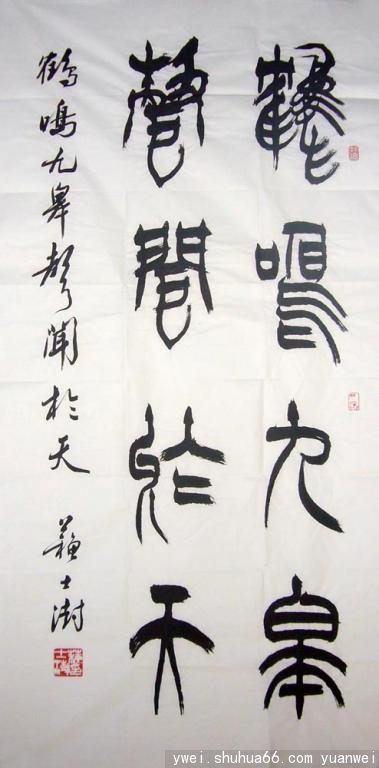 鶴鳴九皋
聲聞於天
鶴鳴九皋聲聞於天
蘇士澍
ywei.shuhua66.com yuanwei